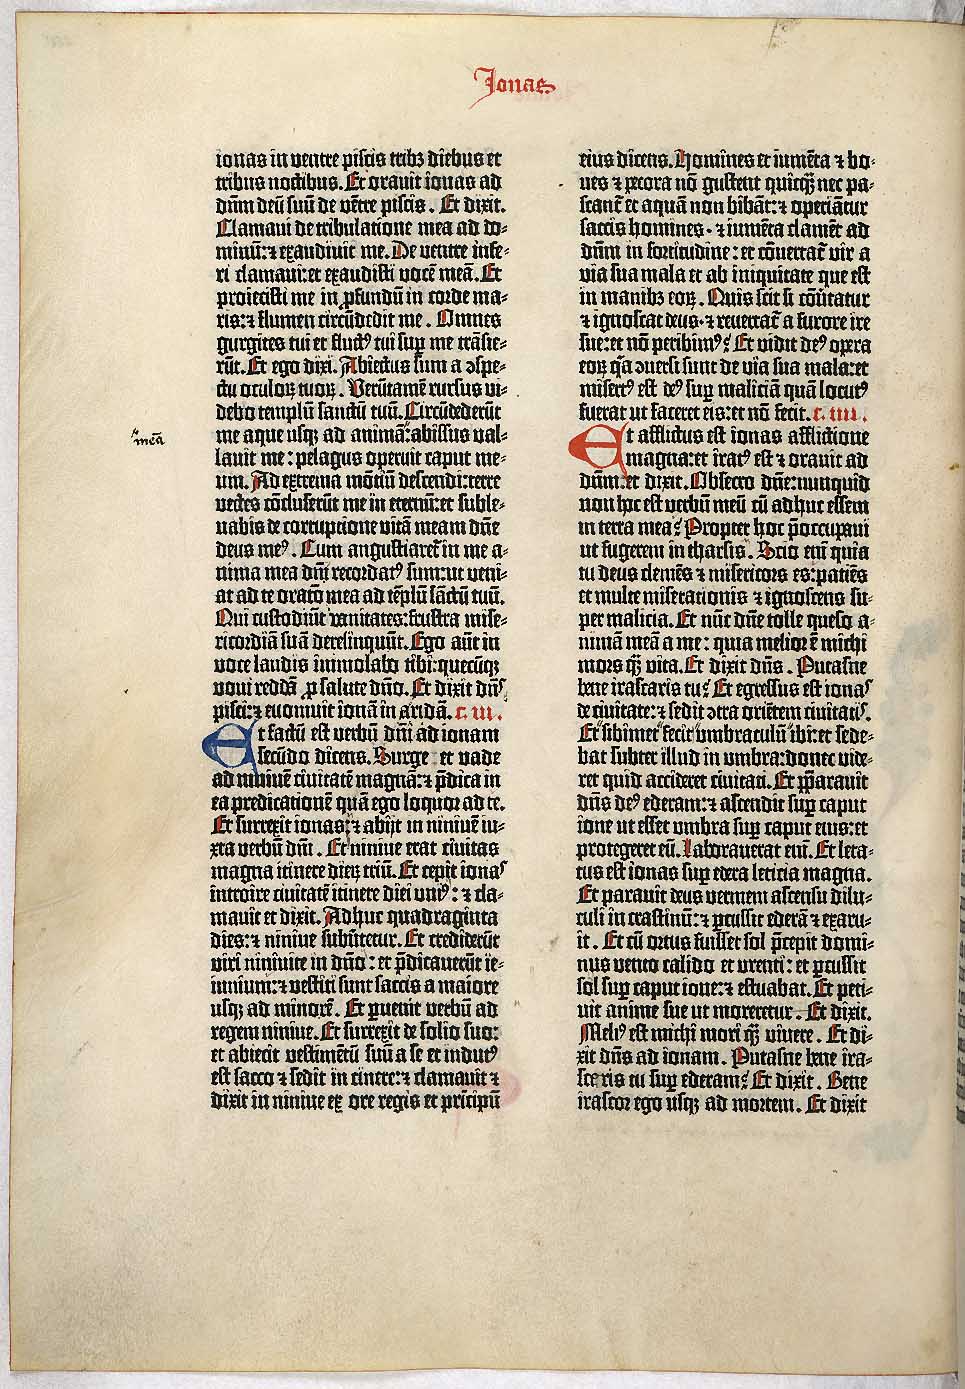 Jonas
ionas in ventre piscis tribꝫ diebus et
tribus noctibus. Et oravit ionas ad
dñm deū suū de vētre piscis. Et dixit.
Clamavi de tribulatione mea ad do⸗
minū: ⁊ exaudivit me. De ventre infe⸗
ri clamavi: et exaudisti vocē meā. Et
proiecisti me in ꝓfundū in corde ma⸗
ris: ⁊ flumen circūdedit me. Omnes
gurgites tui et fluctꝰ tui suꝑ me trāsie⸗
rūt. Et ego dixi. Abiectus sum a ɔspe⸗
ctu oculoꝝ tuoꝝ. Verūtamē rursus vi⸗
debo templū sanctū tuū. Circūdederūt
me aque usqꝫ ad animā" abissus val⸗
"meā
lavit me: pelagus operuit caput me⸗
um. Ad extrema mōtiū descendi: terre
vectes cōcluserūt me in eternū: et suble⸗
vabis de corruptione vitā meam dñe
deus meꝰ. Cum angustiaret᷑ in me a⸗
nima mea dñi recordatꝰ sum: ut veni⸗
at ad te oratō mea ad tēplū sāctū tuū.
Qui custodiūt vanitates: frustra mise⸗
ricordiā suā derelinquūt. Ego aūt in
voce laudis immolabo tibi: quecūqꝫ
vovi reddā ꝓ salute dñō. Et dixit dñs
pisci: ⁊ evomuit ionā in aridā. c. iii.
Et factū est verbū dñi ad ionam
secūdo dicens. Surge et vade
ad ninivē civitatē magnā: ⁊ p̄dica in
ea predicationē quā ego loquor ad te.
Et surrexit ionas: ⁊ abijt in ninivē iu⸗
xta verbū dñi. Et ninive erat civitas
magna itinere dieꝝ triū. Et cepit ionas
introire civitatē itinere diei uniꝰ: ⁊ cla⸗
mavit et dixit. Adhuc quadraginta
dies: ⁊ ninive subvertetur. Et crediderūt
viri ninivite in dñō: et p̄dicaverūt ie⸗
iunium: ⁊ vestiti sunt saccis a maiore
usqꝫ ad minorē. Et ꝑvenit verbū ad
regem ninive. Et surrexit de solio suo:
et abiecit vestimētū suū a se et indutꝰ
est sacco ⁊ sedit in cinere: ⁊ clamavit ⁊
dixit in ninive ex ore regis et prīcipū
eius dicens. Homines et iumēta ⁊ bo⸗
ves ⁊ pecora nō gustent quicqꝫ̄ nec pa⸗
scant᷑ et aquā non bibāt: ⁊ operiātur
saccis homines. ⁊ iumēta clamēt ad
dñm in fortitudine: et cōvertat᷑ vir a
via sua mala et ab iniquitate que est
in manibꝫ eoꝝ. Quis scit si cōvtatur
⁊ ignoscat deus. ⁊ revertat᷑ a furore ire
sue: et nō peribimꝰ? Et vidit deꝰ opera
eoꝝ qā ɔversi sunt de via sua mala: et
misertꝰ est deꝰ suꝑ maliciā quā locutꝰ
fuerat ut faceret eis: et nō fecit. c. iiii.
Et afflictus est ionas afflictione
magna: et iratꝰ est ⁊ oravit ad
dñm: et dixit. Obsecro dñe: nunquid
non hoc est verbū meū cū adhuc essem
in terra mea? Propter hoc p̄occupavi
ut fugerem in tharsis. Scio enī quia
tu deus clemēs ⁊ misericors es: patiēs
et multe miserationis ⁊ ignoscens su⸗
per malicia. Et nūc dñe tolle queso a⸗
nimā meā a me: quia melior ē michi
mors qꝫ̄ vita. Et dixit dñs. Putasne
bene irasceris tu? Et egressus est ionas
de civitate: ⁊ sedit ɔtra oriētem civitatis.
Et "sibimet" fecit umbraculū "ibi: et sede⸗
bat subter illud in umbra: donec vide⸗
ret quid accideret civitati. Et p̄paravit
dñs deꝰ ederam: ⁊ ascendit suꝑ caput
ione ut esset umbra suꝑ caput eius: et
protegeret eū. Laboraverat enī. Et leta⸗
tus est ionas suꝑ edera leticia magna.
Et paravit deus vermem ascensu dilu⸗
culi in crastinū: ⁊ ꝑcussit ederā ⁊ exaru⸗
it. Et cū ortus fuisset sol p̄cepit domi⸗
nus vento calido et urenti: et ꝑcussit
sol suꝑ caput ione: ⁊ estuabat. Et peti⸗
vit anime sue ut moreretur. Et dixit.
Meliꝰ est michi mori qꝫ̄ vivere. Et di⸗
xit dñs ad ionam. Putasne bene ira⸗
sceris tu suꝑ ederam? Et dixit. Bene
irascor ego usqꝫ ad mortem. Et dixit